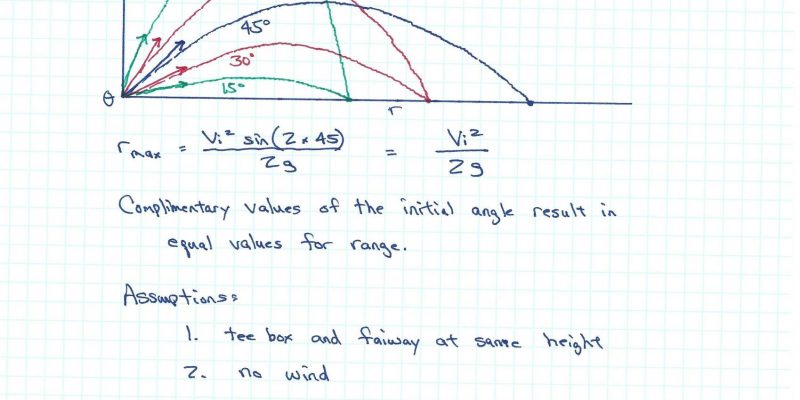 45°
30°
15°
θ
r
r max = Vi² sin(2 × 45) / 2g = Vi² / 2g
Complimentary values of the initial angle result in
equal values for range.
Assumptions:
1. tee box and faiway at same height
2. no wind